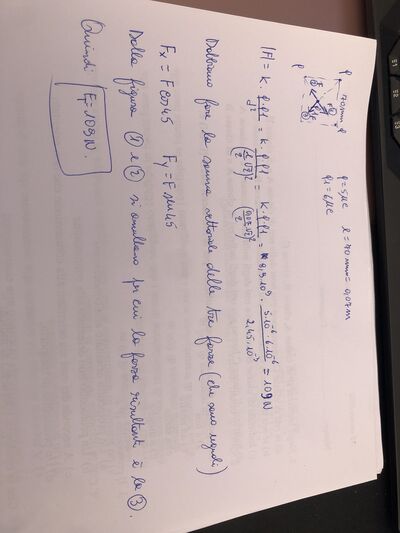 q = 5μC l = 70 mm = 0,07 m
q1 = 6μC
q 70mm q
q
|F| = k · q·q1/d² = k · q q1/(l√2/2)² = k · q·q1/(0,07·√2/2)² = 8,9·10⁹ · 5·10⁻⁶·6·10⁻⁶/2,45·10⁻³ = 109 N
Dobbiamo fare la somma vettoriale delle tre forze (che sono uguali)
Fx = F cos 45 Fy = F sin 45
Dalla figura ① e ② si annullano per cui la forza risultante è la ③.
Quindi F = 109 N.